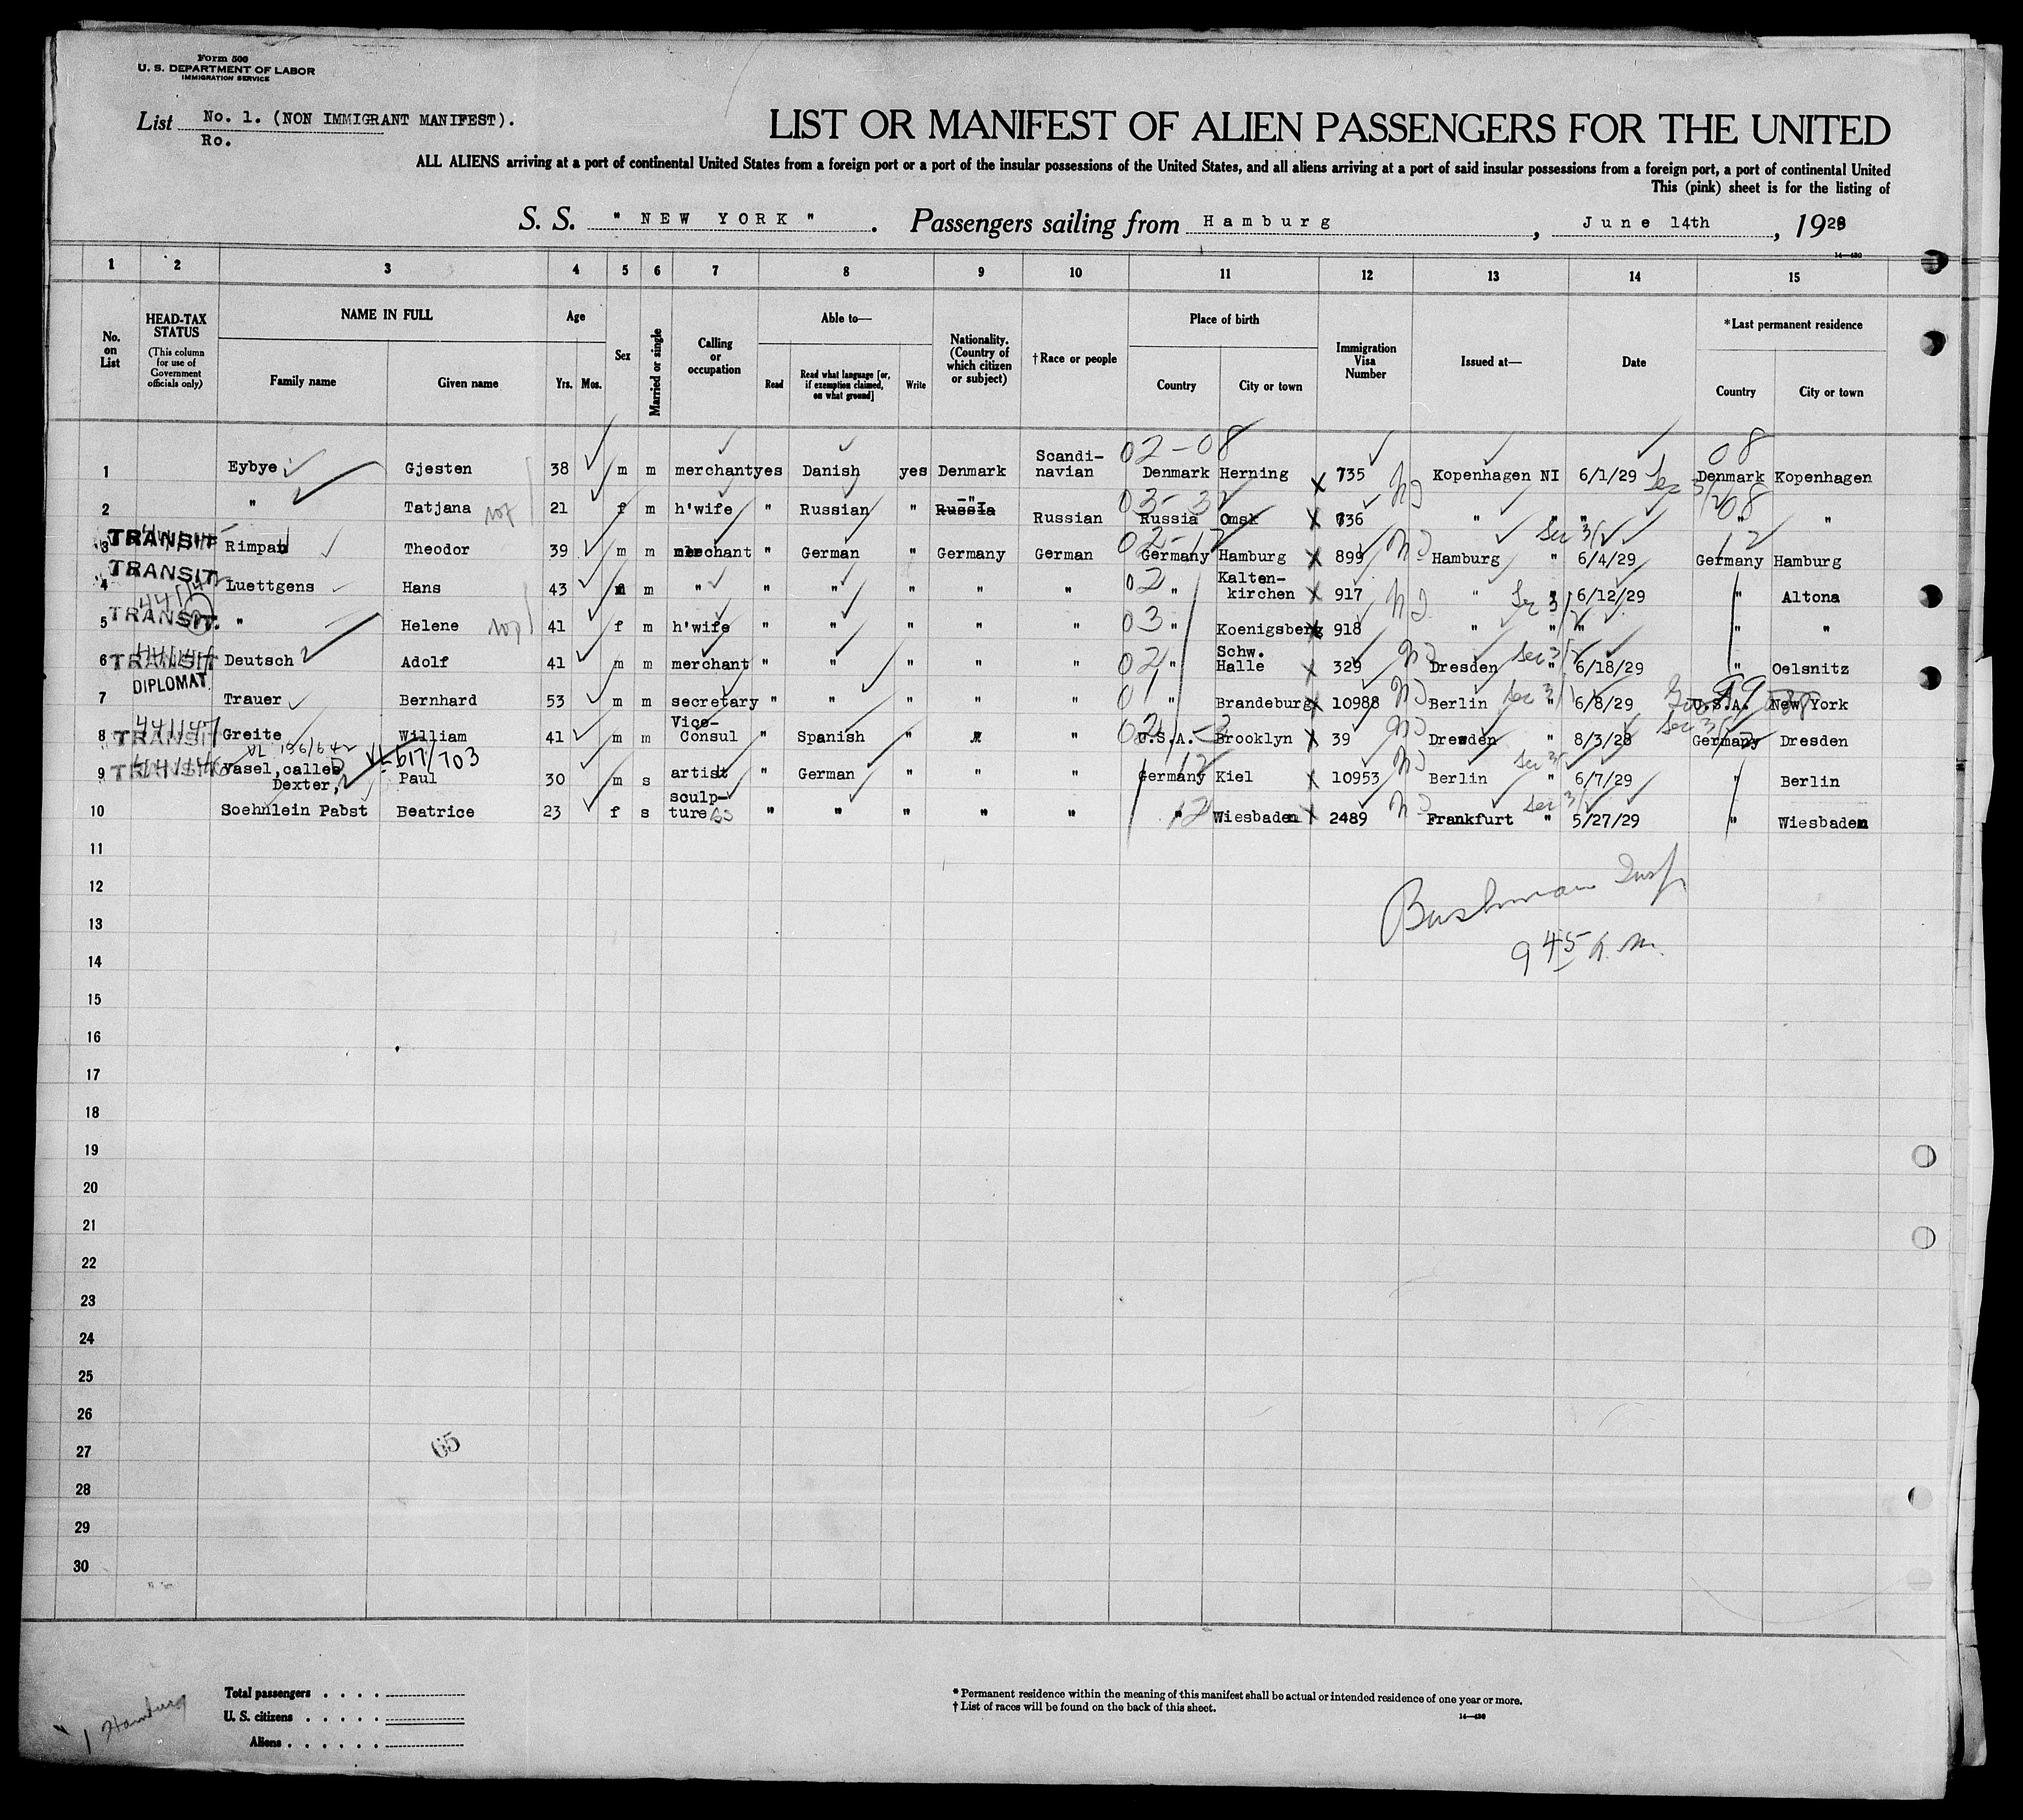 Form 500
U. S. DEPARTMENT OF LABOR
IMMIGRATION SERVICE
List No. 1. (NON IMMIGRANT MANIFEST).
Ro.
LIST OR MANIFEST OF ALIEN PASSENGERS FOR THE UNITED
ALL ALIENS arriving at a port of continental United States from a foreign port or a port of the insular possessions of the United States, and all aliens arriving at a port of said insular possessions from a foreign port, a port of continental United
This (pink) sheet is for the listing of
S. S. " NEW YORK ". Passengers sailing from Hamburg, June 14th, 1929
14—430
1 2 3 4 5 6 7 8 9 10 11 12 13 14 15
No. on List
HEAD-TAX STATUS
(This column for use of Government officials only)
NAME IN FULL
Family name Given name
Age
Yrs. Mos.
Sex
Married or single
Calling or occupation
Able to—
Read Read what language [or, if exemption claimed, on what ground] Write
Nationality. (Country of which citizen or subject)
†Race or people
Place of birth
Country City or town
Immigration Visa Number
Issued at—
Date
*Last permanent residence
Country City or town
02-08 08
1 Eybye Gjesten 38 m m merchant yes Danish yes Denmark Scandi-navian Denmark Herning 735 Kopenhagen NI 6/1/29 Denmark Kopenhagen
2 " Tatjana 21 f m h'wife " Russian " Russia " Russian Russia Omsk 736 " " " " "
TRANSIT
3 Rimpau Theodor 39 m m merchant " German " Germany German Germany Hamburg 899 Hamburg " 6/4/29 Germany Hamburg
TRANSIT
4 Luettgens Hans 43 m m " " " " " " " Kalten-kirchen 917 " " 6/12/29 " Altona
TRANSIT.
5 " Helene 41 f m h'wife " " " " " " Koenigsberg 918 " " " " "
TRANSIT
6 Deutsch Adolf 41 m m merchant " " " " " " Schw. Halle 329 Dresden " 6/18/29 " Oelsnitz
DIPLOMAT.
7 Trauer Bernhard 53 m m secretary " " " " " " Brandeburg 10988 Berlin " 6/8/29 U.S.A. New York
TRANSIT
8 Greite William 41 m m Vice-Consul " Spanish " " " U.S.A. Brooklyn 39 Dresden " 8/3/28 Germany Dresden
VL 617/703
TRANSIT
9 Vasel, called Dexter, Paul 30 m s artist " German " " " Germany Kiel 10953 Berlin " 6/7/29 " Berlin
10 Soehnlein Pabst Beatrice 23 f s sculp-ture " " " " " " Wiesbaden 2489 Frankfurt " 5/27/29 " Wiesbaden
11
12
Bushman Insp
13
9 45 A. M.
14
15
16
17
18
19
20
21
22
23
24
25
26
27
65
28
29
30
1 Hamburg
Total passengers . . . .
U. S. citizens . . . . .
Aliens . . . . . .
* Permanent residence within the meaning of this manifest shall be actual or intended residence of one year or more.
† List of races will be found on the back of this sheet.
14—430